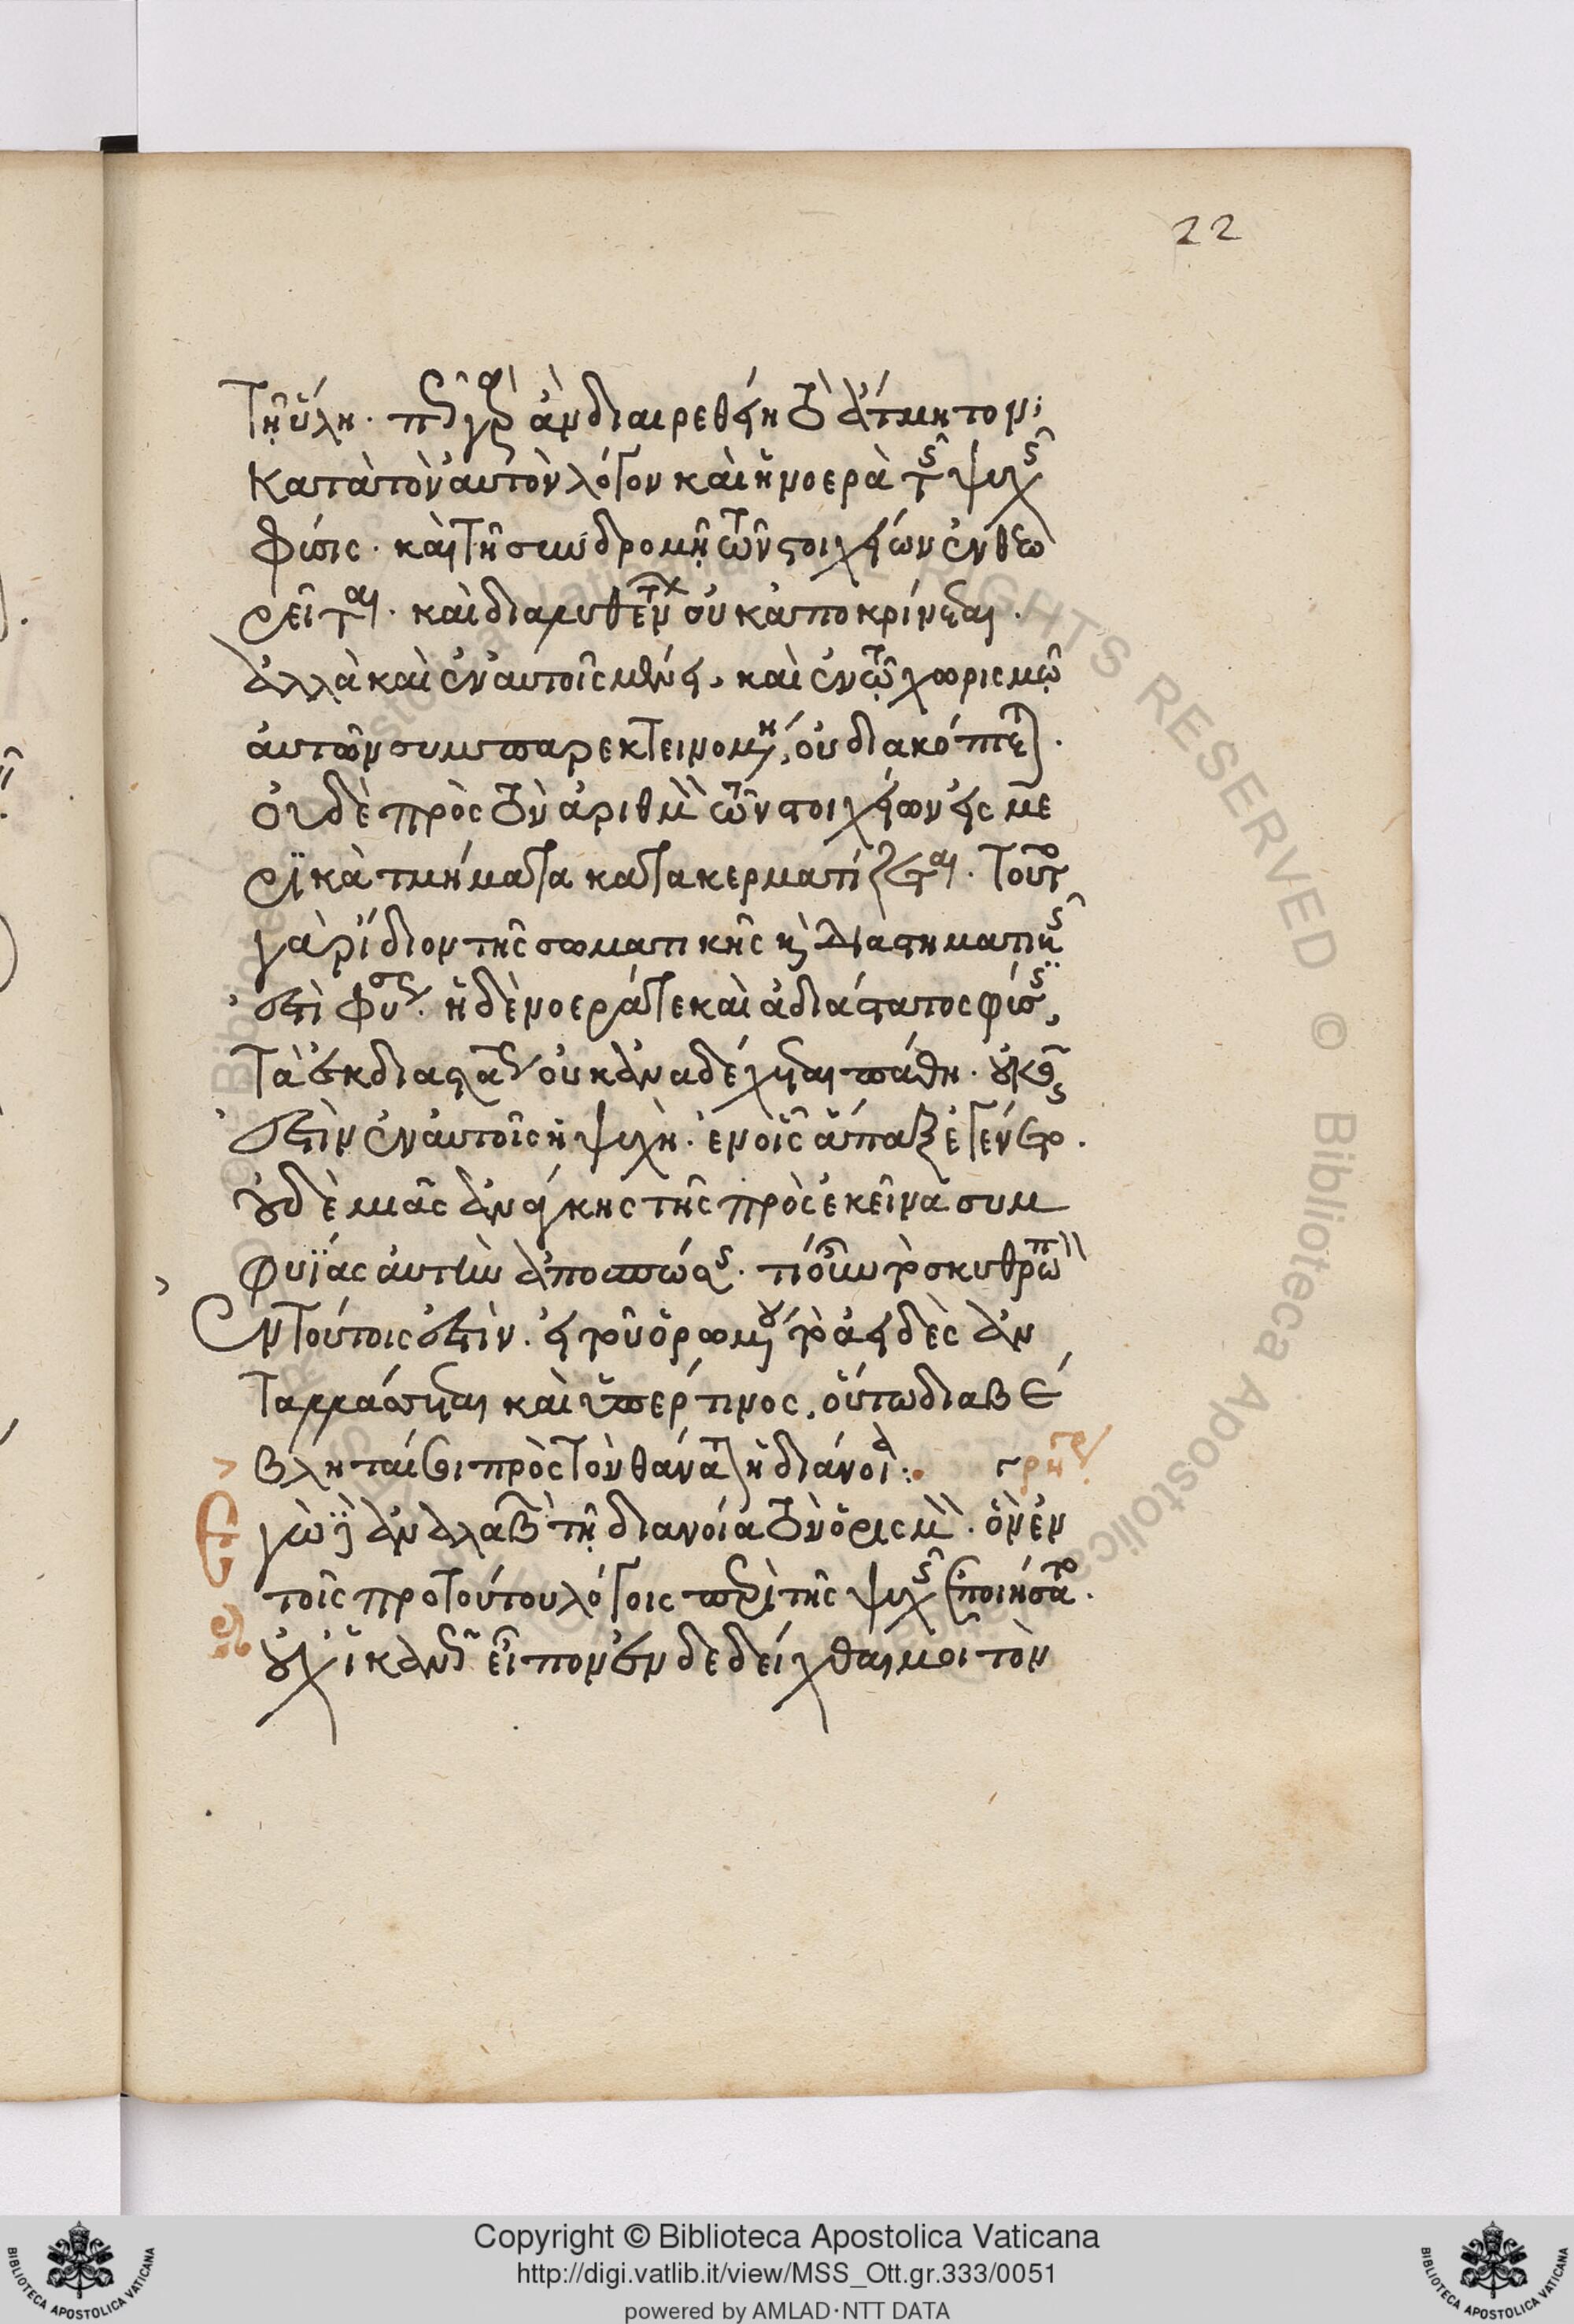 22
τῆ ὕλη. πῶς γὰρ ἂν διαιρεθείη τὸ ἄτμητον;
κατὰ τὸν αὐτὸν λόγον καὶ ἡ νοερὰ τῆς ψυχῆς
φύσις. καὶ τῆ συνδρομῆ τῶν στοιχείων ἐνθεω
ρεῖται. καὶ διαλυθέντων οὐκ ἀποκρίνεται.
ἀλλὰ καὶ ἐν αὐτοῖς μένει, καὶ ἐν τῷ χωρισμῷ
αὐτῶν συμπαρεκτεινομένη, οὐ διακόπτεται.
οὐδὲ πρὸς τὸν ἀριθμὸν τῶν στοιχείων εἰς με
ρικὰ τμήματα κατακερματίζεται. τοῦτο
γὰρ ἴδιον τῆς σωματικῆς καὶ διαστηματικῆς
ἐστὶ φύσεως. ἡ δὲ νοερά τε καὶ ἀδιάστατος φύσις,
τὰ ἐκ διαστάσεως οὐκ ἀναδέχεται πάθη. οὐκοῦν
ἐστὶν ἐν αὐτοῖς ἡ ψυχὴ. ἐν οἷς ἅπαξ ἐγένετο.
οὐδεμιᾶς ἀνάγκης τῆς πρὸς ἐκεῖνα συμ
φυΐας αὐτὴν ἀποσπώσης. τί οὖν τὸ σκυθρωπὸν
ἐν τούτοις ἐστὶν. εἰ τοῦ ὁρωμένου τὸ ἀειδὲς ἀν
ταλλάσσεται καὶ ὑπὲρ τίνος, οὕτω διαβέ
βληταί σοι πρὸς τὸν θάνατον ἡ διάνοια:
γὼ δὲ ἀναλαβὼν τῆ διανοία τὸν ὁρισμὸν. ὃν ἐν
τοῖς πρὸ τούτου λόγοις περὶ τῆς ψυχῆς ἐποιήσατο.
οὐχ ἱκανῶς εἶπον ἐνδεδεῖχθαι μοι τὸν
Copyright © Biblioteca Apostolica Vaticana
http://digi.vatlib.it/view/MSS_Ott.gr.333/0051
powered by AMLAD·NTT DATA